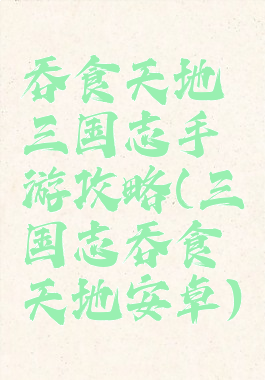 吞食天地
三国志手
游攻略(三
国志吞食
天地安卓)